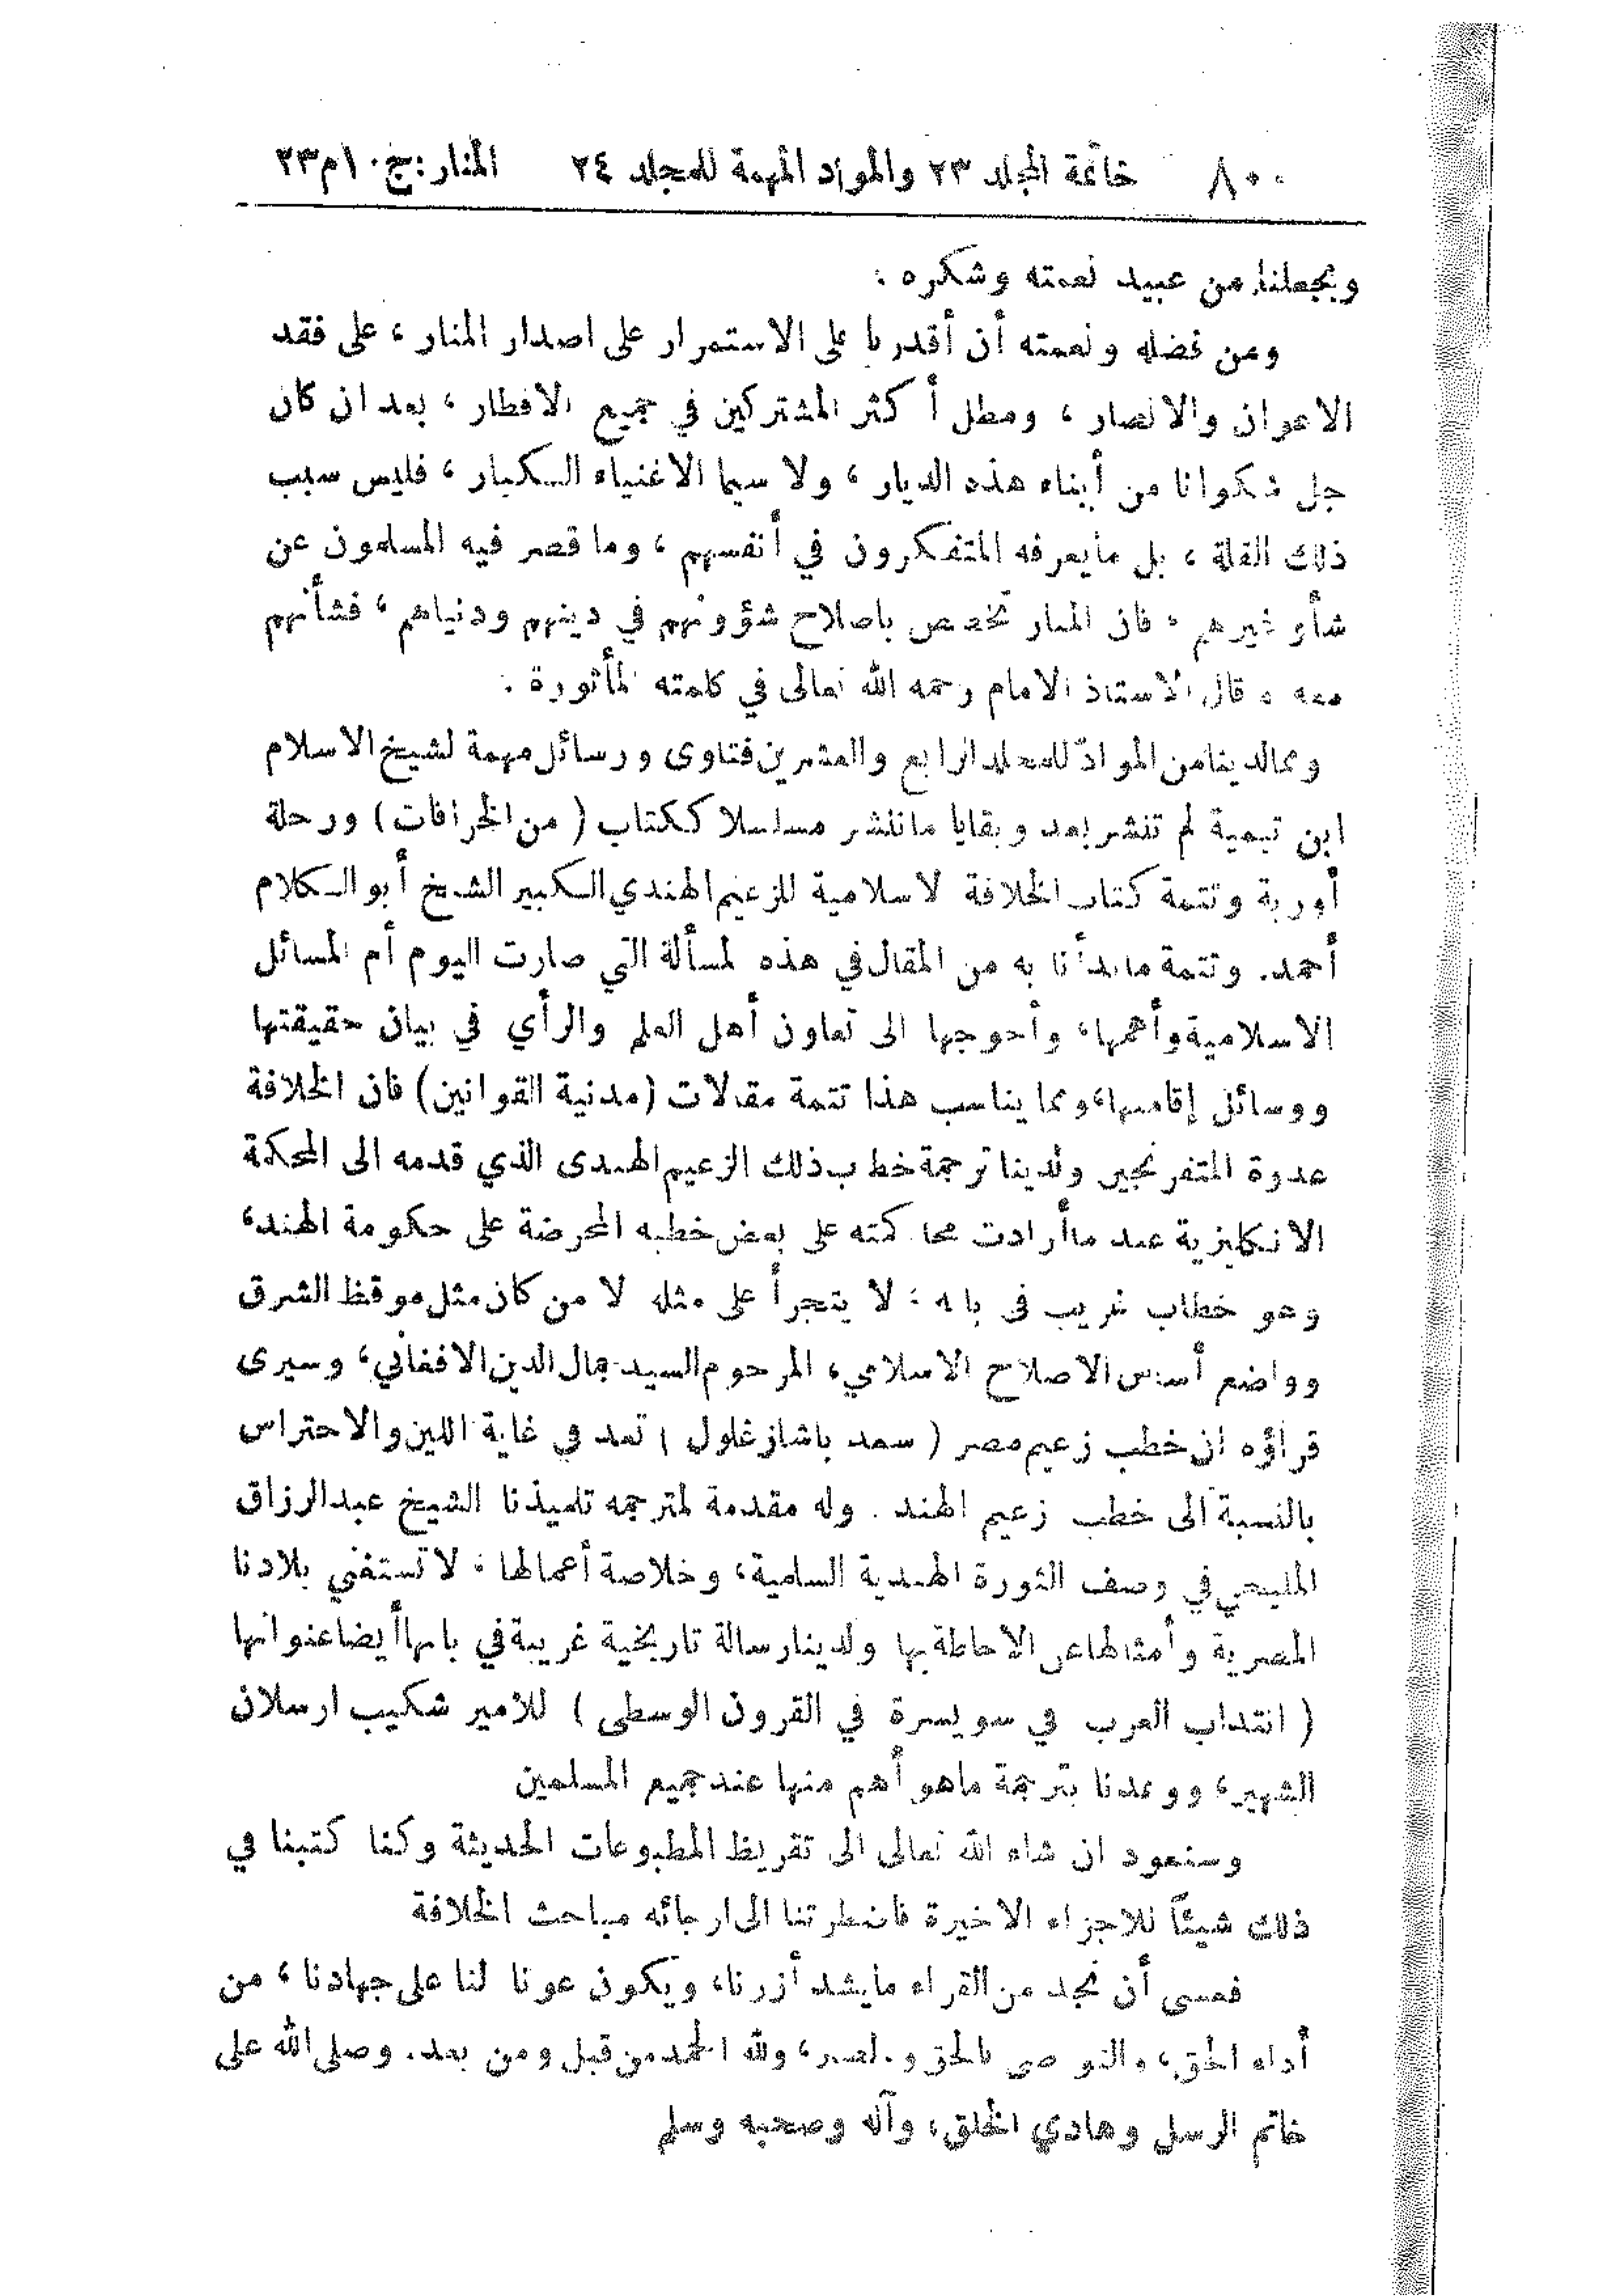 ٨٠٠ خاتمة المجلد ٢٣ والمواد المهمة للمجلد ٢٤ المنار : ج ١٠ م ٢٣
ويجعلنا من عبيد نعمته وشكره :
ومن فضله ونعمته أن أقدرنا على الاستمرار على اصدار المنار ، على فقد
الاعوان والانصار ، ومطل أكثر المشتركين في جميع الاقطار ، بعد ان كان
جل شكوانا من أبناء هذه الديار ، ولا سيما الاغنياء الكبار ، فليس سبب
ذلك القلة ، بل ما يعرفه المتفكرون في أنفسهم ، وما قصر فيه المسلمون عن
شأو غيرهم ، فان المنار خصص باصلاح شؤونهم في دينهم ودنياهم ، فشأنهم
معه ما قال الاستاذ الامام رحمه الله تعالى في كلمته المأثورة .
ومما لدينا من المواد للمجلد الرابع والعشرين فتاوى ورسائل مهمة لشيخ الاسلام
ابن تيمية لم تنشر بعد وبقايا ما ننشر مسلسلا ككتاب ( من الخرافات ) ورحلة
أوربة وتتمة كتاب الخلافة الاسلامية للزعيم الهندي الكبير الشيخ أبو الكلام
أحمد. وتتمة ما بدأنا به من المقال في هذه المسألة التي صارت اليوم أم المسائل
الاسلامية وأهمها، وأحوجها الى تعاون أهل العلم والرأي في بيان حقيقتها
ووسائل إقامتها، ومما يناسب هذا تتمة مقالات (مدنية القوانين) فان الخلافة
عدوة المتفرنجين ولدينا ترجمة خطاب ذلك الزعيم الهندى الذي قدمه الى المحكمة
الانكليزية عند ما أرادت محاكمته على بعض خطبه المحرضة على حكومة الهند،
وهو خطاب غريب في بابه : لا يتجرأ على مثله الا من كان مثل موقظ الشرق
وواضع أساس الاصلاح الاسلامي، المرحوم السيد جمال الدين الافغاني، وسيرى
قراؤه ان خطب زعيم مصر ( سعد باشا زغلول ) تعد في غاية اللين والاحتراس
بالنسبة الى خطب زعيم الهند . وله مقدمة لمترجمه تلميذنا الشيخ عبد الرزاق
المليحي في وصف الثورة الهندية السلمية، وخلاصة أعمالها : لا تستغني بلادنا
المصرية وأمثالها عن الاحاطة بها ولدينا رسالة تاريخية غريبة في بابها أيضا عنوانها
( انتداب العرب في سويسرة في القرون الوسطى ) للامير شكيب ارسلان
الشهير، ووعدنا بترجمة ما هو أهم منها عند جميع المسلمين
وسنعود ان شاء الله تعالى الى تقريظ المطبوعات الحديثة وكنا كتبنا في
ذلك شيئاً للاجزاء الاخيرة فاضطرتنا الى ارجائه مباحث الخلافة
فعسى أن نجد من القراء ما يشد أزرنا، ويكون عونا لنا على جهادنا ، من
أداء الحق، والتواصي بالحق والصبر، ولله الحمد من قبل ومن بعد. وصلى الله على
خاتم الرسل وهادي الخلق، وآله وصحبه وسلم